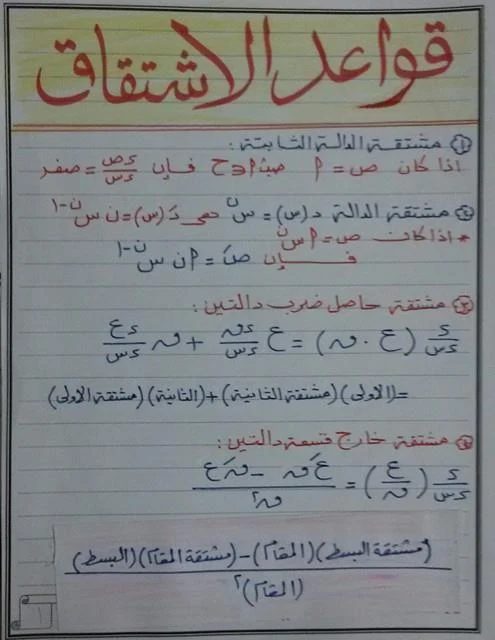 قواعد الاشتقاق
① مشتقة الدالة الثابتة :
اذا كان ص = ٢ حيث ٢ ∈ ح فإن ءص/ءس = صفر
② مشتقة الدالة د(س) = س^ن هى دَ(س) = ن س^ن-١
* اذا كان ص = ٢ س^ن
فإن صَ = ٢ ن س^ن-١
③ مشتقة حاصل ضرب دالتين :
ء/ءس (ع . ن) = ع ءن/ءس + ن ءع/ءس
= (الاولى) (مشتقة الثانية) + (الثانية) (مشتقة الاولى)
④ مشتقة خارج قسمة دالتين :
ء/ءس (ع/ن) = (عَ ن - نَ ع)/ن^٢
(مشتقة البسط) (المقام) - (مشتقة المقام) (البسط)
(المقام)^٢
١